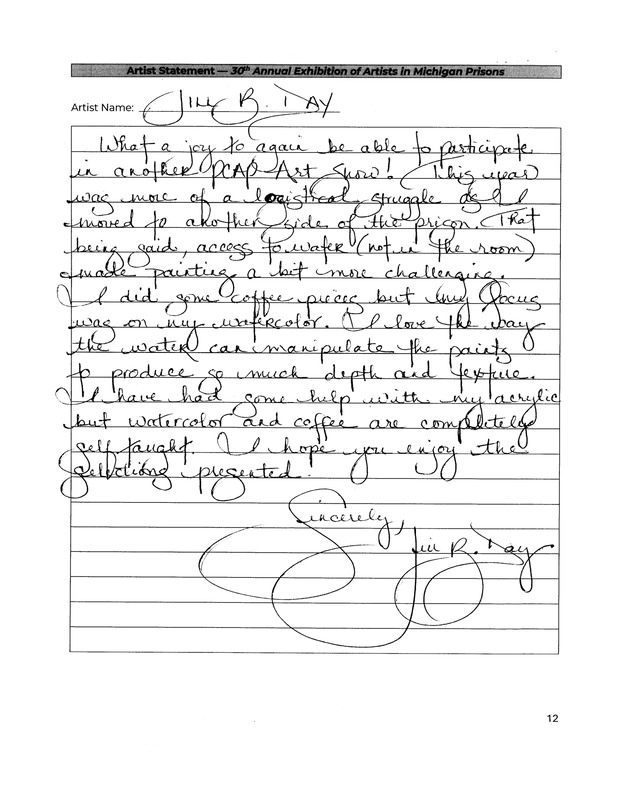 Artist Statement — 30th Annual Exhibition of Artists in Michigan Prisons
Artist Name: Jill R. Day
What a joy to again be able to participate
in another PCAP Art Show! This year
was more of a logistical struggle as I
moved to another side of the prison. That
being said, access to water (not in the room)
made painting a bit more challenging.
I did some coffee pieces but my focus
was on my watercolor. I love the way
the water can manipulate the paints
to produce so much depth and texture.
I have had some help with my acrylic
but watercolor and coffee are completely
self taught. I hope you enjoy the
selections presented.
Sincerely,
Jill R. Day
12